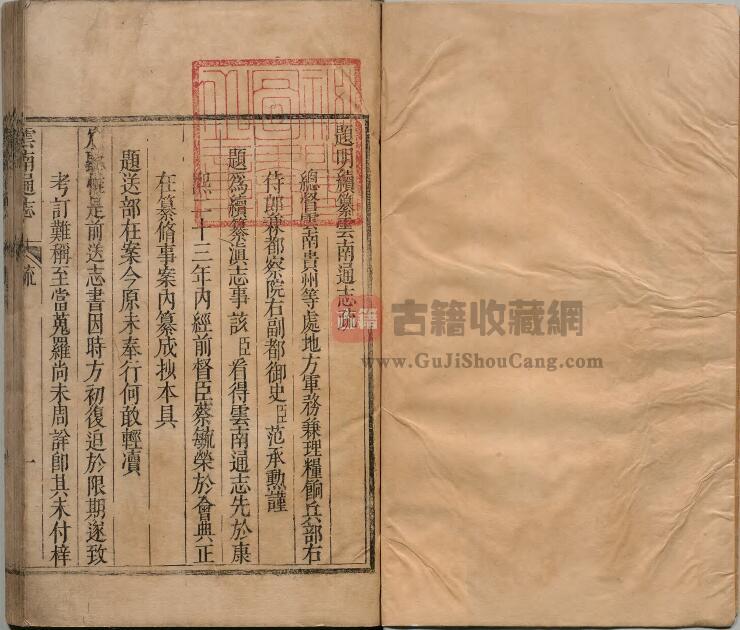 題明續纂雲南通志疏
總督雲南貴州等處地方軍務兼理糧餉兵部右
侍郎兼都察院右副都御史臣范承勳謹
題為續纂滇志事該臣看得雲南通志先於康
熙二十三年內經前督臣蔡毓榮於會典正
在纂脩事案內纂成抄本具
題送部在案今原未奉行何敢輕瀆
是前送志書因時方初復迫於限期遂致
考訂難稱至當蒐羅尚未周詳卽其未付梓
雲南通志
疏
一
古籍收藏網
www.GuJiShouCang.com